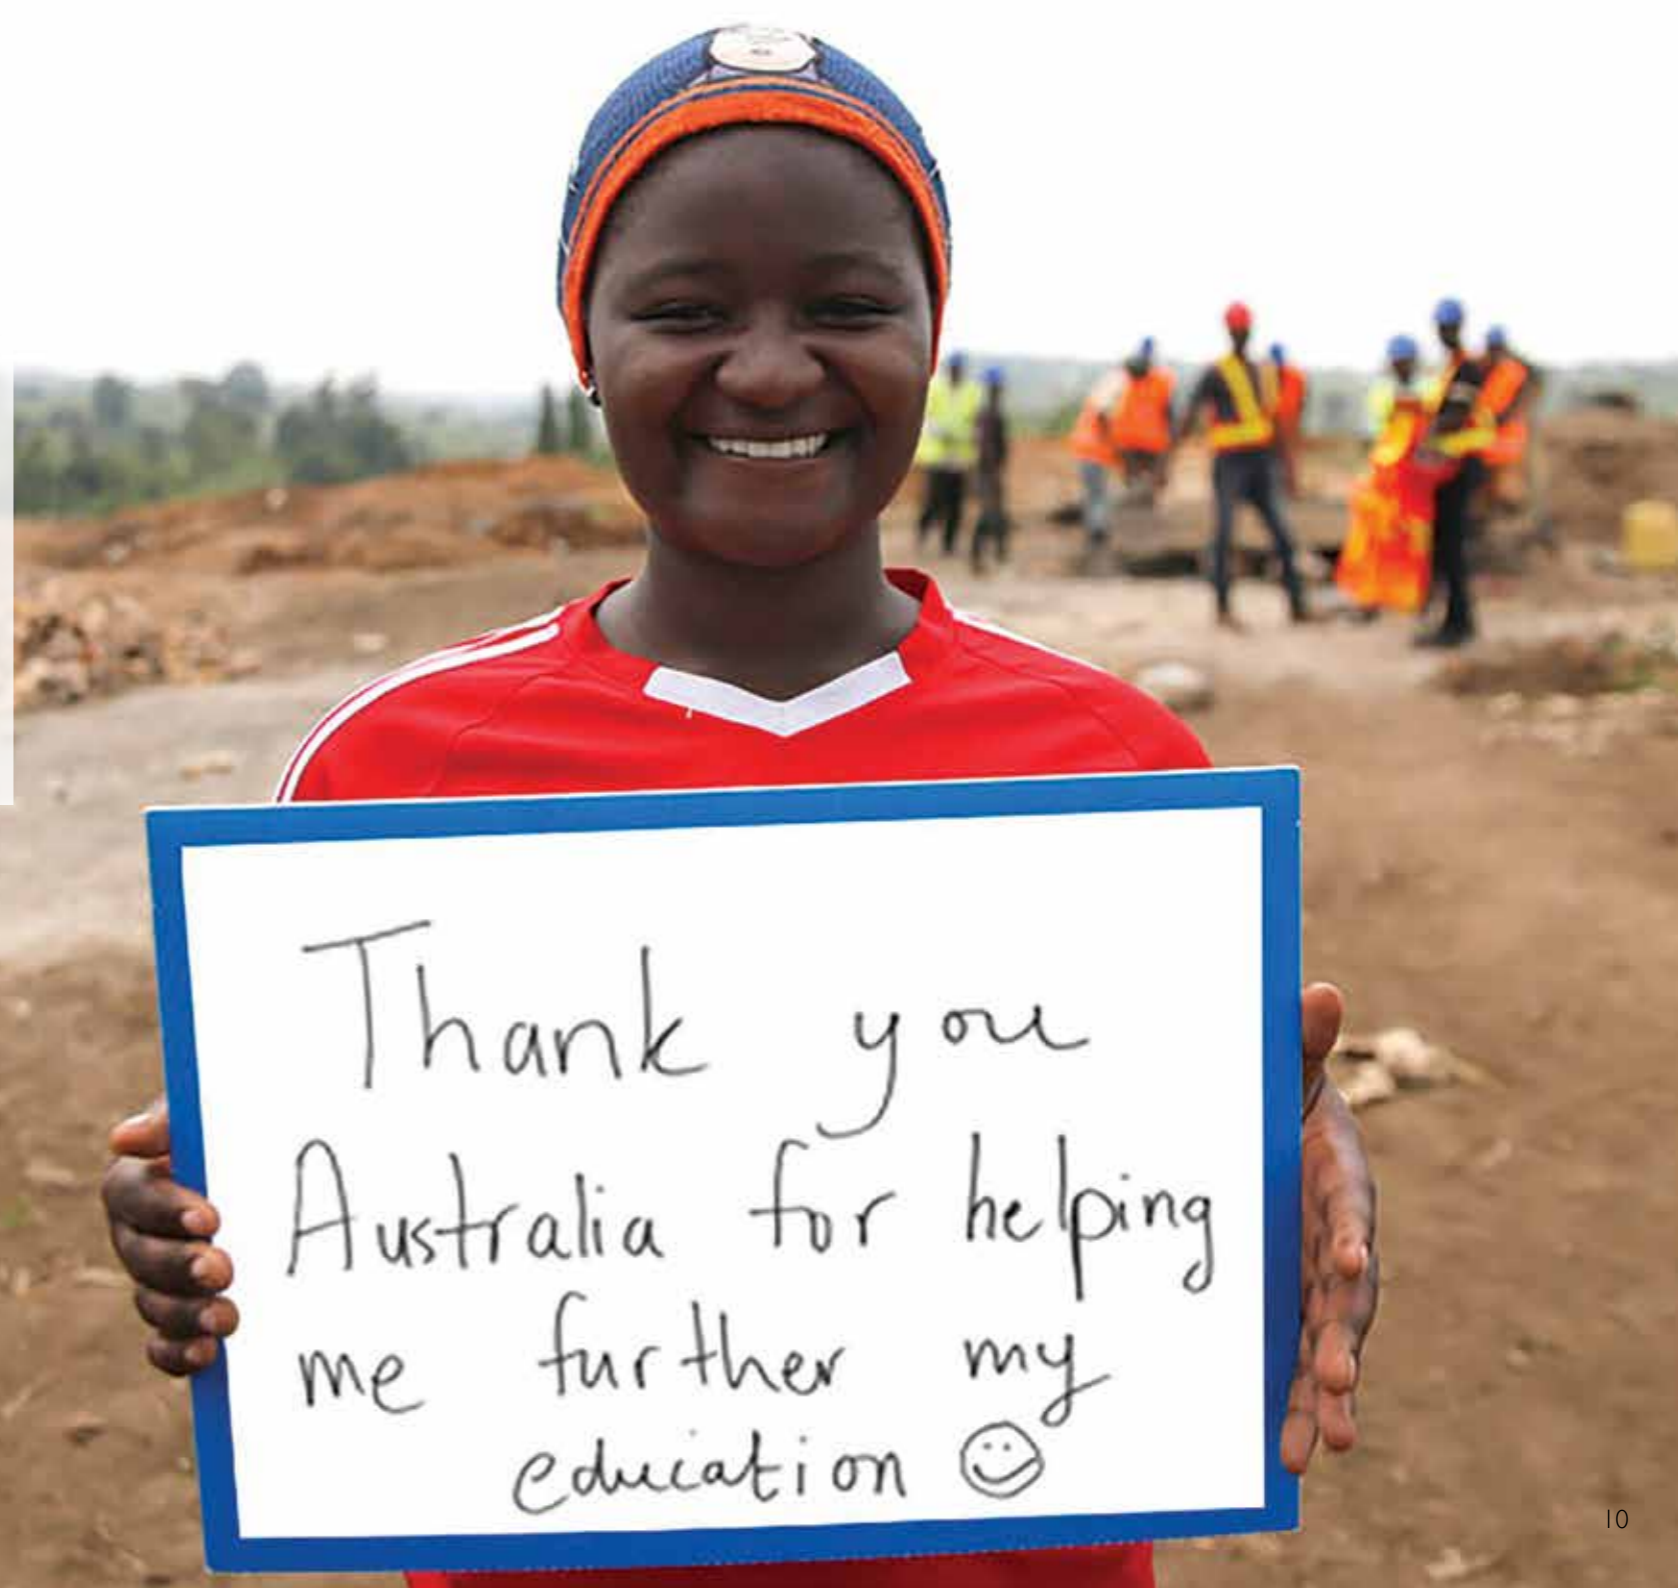 Thank you
Australia for helping
me further my
education ☺
10